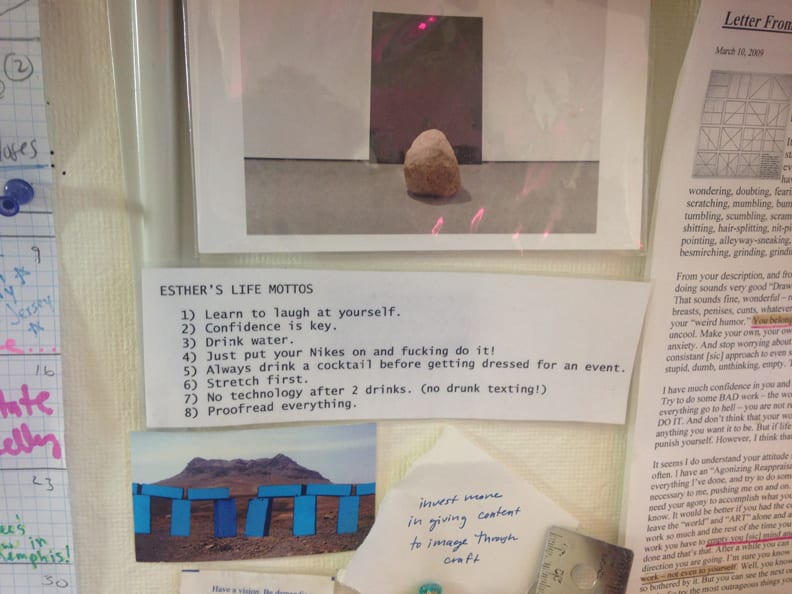 2
9
Jersey
16
23
Memphis!
30
ESTHER'S LIFE MOTTOS
1) Learn to laugh at yourself.
2) Confidence is key.
3) Drink water.
4) Just put your Nikes on and fucking do it!
5) Always drink a cocktail before getting dressed for an event.
6) Stretch first.
7) No technology after 2 drinks. (no drunk texting!)
8) Proofread everything.
invest more
in giving content
to image through
craft
Have a vision. Be
Letter From
March 10, 2009
wondering, doubting,
scratching, mumbling,
tumbling, scumbling,
shitting, hair-splitting,
pointing, alleyway-sneaking,
besmirching, grinding,
From your description, and
doing sounds very good
That sounds fine, wonderful –
breasts, penises, cunts,
your "weird humor." You belong
uncool. Make your own, your
anxiety. And stop worrying about
consistant [sic] approach to even
stupid, dumb, unthinking, empty.
I have much confidence in you and
Try to do some BAD work – the
everything go to hell – you are not
DO IT. And don't think that your
anything you want it to be. But if life
punish yourself. However, I think that
It seems I do understand your attitude
often. I have an "Agonizing Reappraisal
everything I've done, and try to do
necessary to me, pushing me on and on.
need your agony to accomplish what you
know. It would be better if you had the
leave the "world" and "ART" alone and
work so much and the rest of the time
work you have to empty you [sic] mind
done and that's. After a while you can
direction you are going. I'm sure you know
work – not even to yourself. Well, you know
so bothered by it. But you can see the next
the most outrageous things you